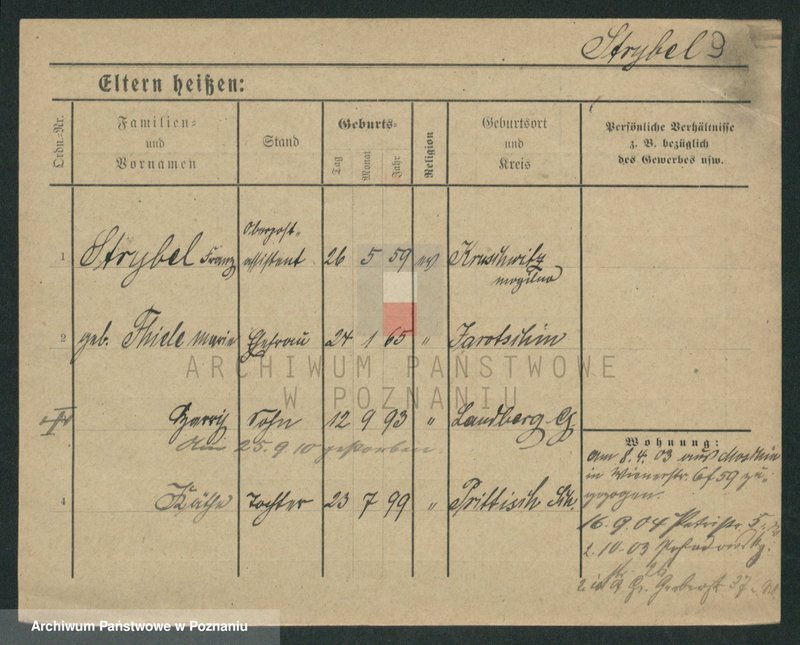 Strybel
Eltern heißen:
Ordn.-Nr.
Familien- und Vornamen
Stand
Geburts-
Tag
Monat
Jahr
Religion
Geburtsort und Kreis
Persönliche Verhältnisse
z. B. bezüglich
des Gewerbes usw.
1 Strybel Franz Oberpost-assistent 26 5 59 ev Kruschwitz
Mogilno
2 geb. Thiele Marie Ehefrau 24 1 65 " Jarotschin
ARCHIWUM PAŃSTWOWE
W POZNANIU
Sohn 12 9 93 " Landsberg
Am 25.9.10 gestorben.
4 Käthe Tochter 23 7 99 " Prittisch
Wohnung:
Am 8.4.03 aus Moschin
in Wienerstr. 59 zu-
gezogen.
16.9.04 Petristr.
2.10.03
Gr. Gerberstr. 37
Archiwum Państwowe w Poznaniu